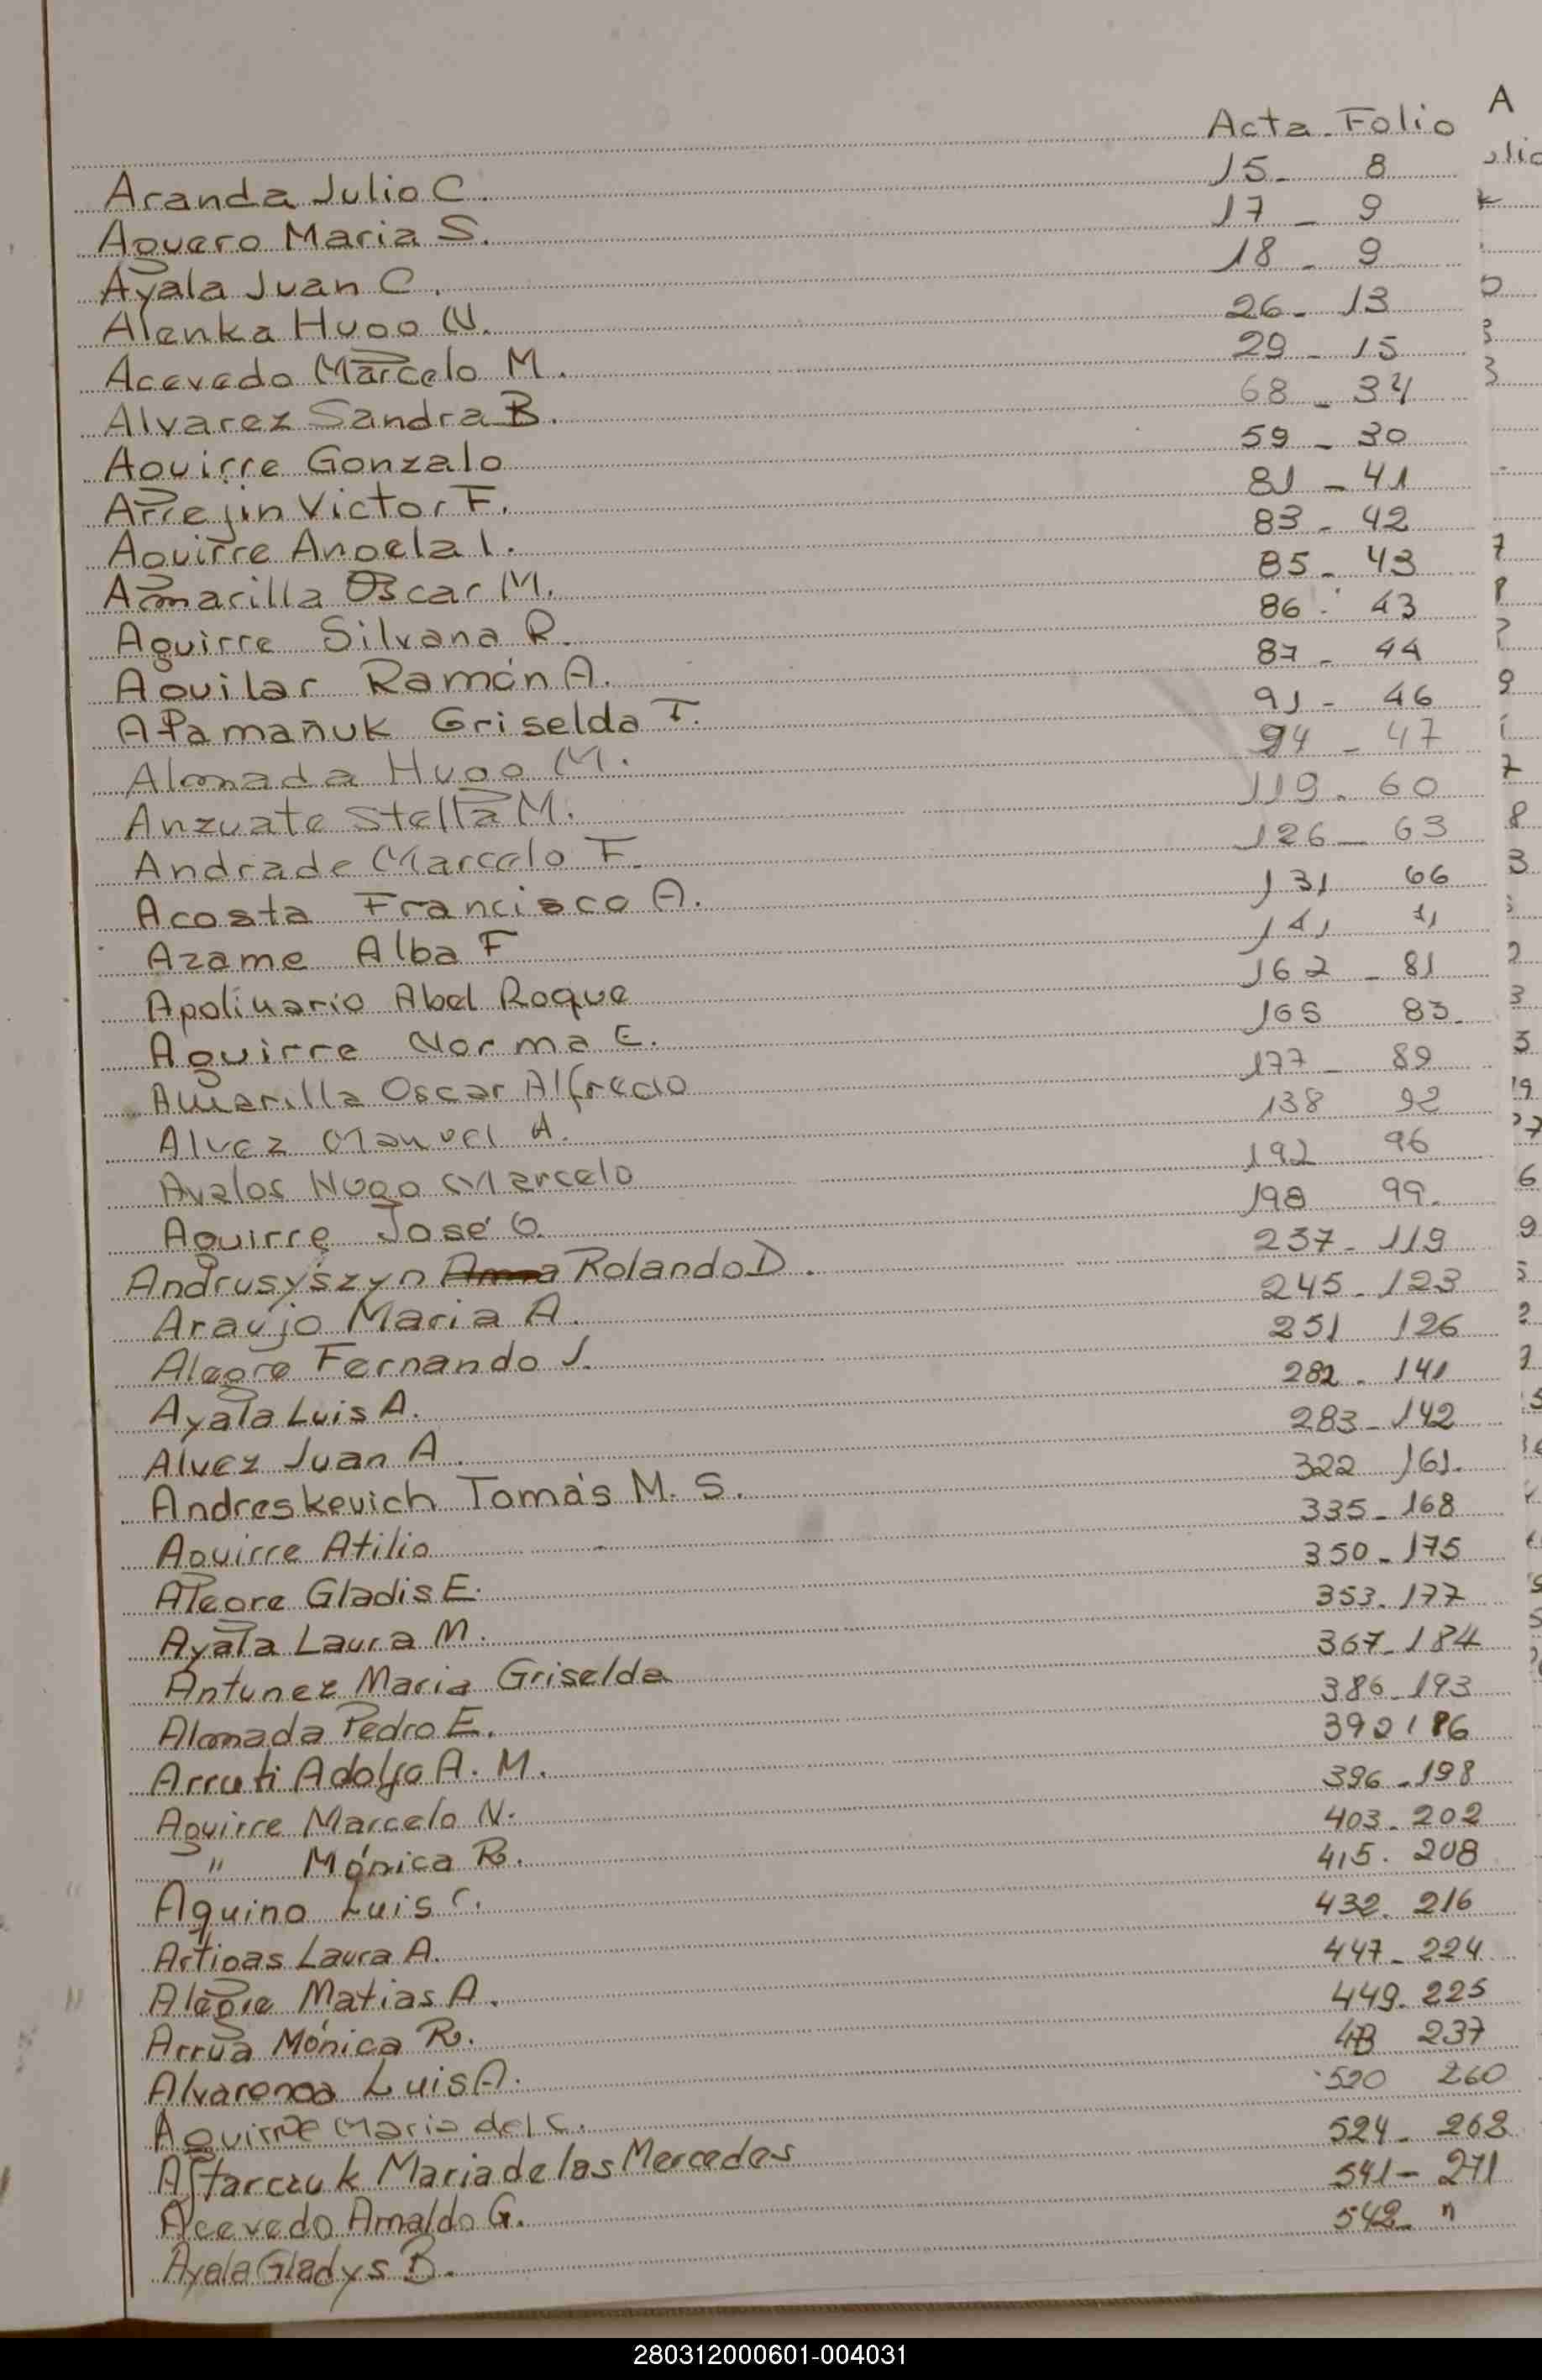 A
Acta - Folio
Aranda Julio C. 15 - 8
Aguero Maria S. 17 - 9
Ayala Juan C. 18 - 9
Alenka Hugo N. 26 - 13
Acevedo Marcelo M. 29 - 15
Alvarez Sandra B. 68 - 34
Aguirre Gonzalo 59 - 30
Arrejin Victor F. 81 - 41
Aguirre Angela I. 83 - 42
Amarilla Oscar M. 85 - 43
Aguirre Silvana R. 86 - 43
Aguilar Ramón A. 87 - 44
Apamañuk Griselda T. 91 - 46
Almada Hugo M. 94 - 47
Anzuate Stella M. 119 - 60
Andrade Marcelo F. 126 - 63
Acosta Francisco A. 131 66
Azame Alba F 141 71
Apolinario Abel Roque 162 - 81
Aguirre Norma E. 165 83.
Amarilla Oscar Alfredo 177 - 89
Alvez Manuel A. 138 92
Avalos Hugo Marcelo 192 96
Aguirre José O. 198 99.
Andrusyszyn Rolando D. 237 - 119
Araujo Maria A. 245 - 123
Alegre Fernando J. 251 126
Ayala Luis A. 282 - 141
Alvez Juan A. 283 - 142
Andreskevich Tomás M. S. 322 161.
Aguirre Atilio 335 - 168
Alegre Gladis E. 350 - 175
Ayala Laura M. 353 - 177
Antunez Maria Griselda 367 - 184
Almada Pedro E. 386 - 193
Arruti Adolfo A. M. 392 196
Aguirre Marcelo N. 396 - 198
" Mónica R. 403 - 202
Aquino Luis C. 415 - 208
Artigas Laura A. 432 - 216
Alegre Matias A. 447 - 224
Arrua Mónica R. 449 - 225
Alvarenga Luis A. 237
Aguirre Maria del C. 520 260
Aftarczuk Maria de las Mercedes 524 - 262
Acevedo Arnaldo G. 541 - 271
Ayala Gladys B. 542 - "
280312000601-004031